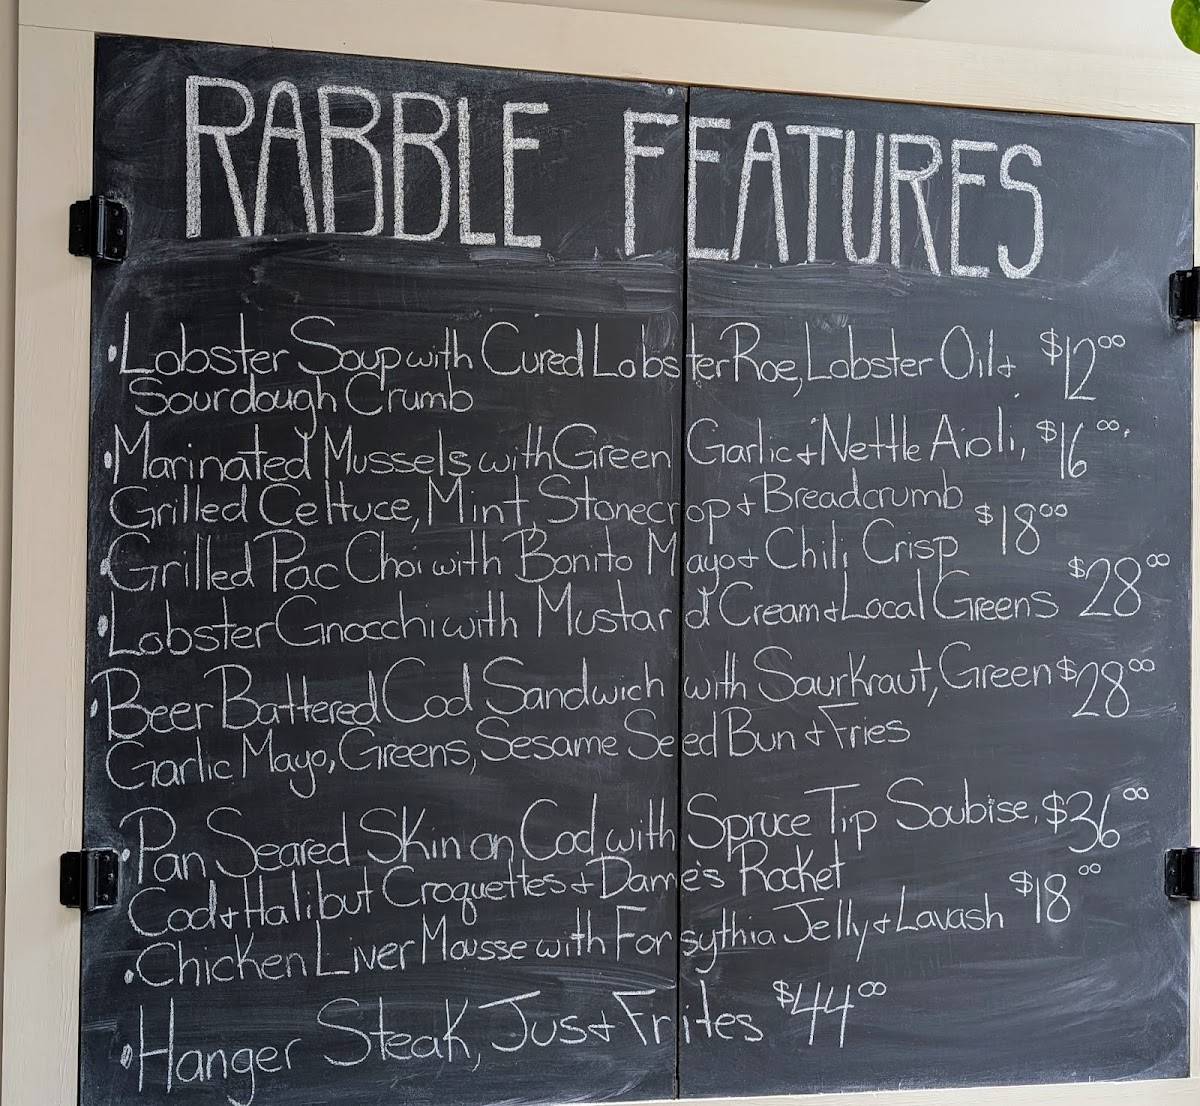 RABBLE FEATURES
• Lobster Soup with Cured Lobster Roe, Lobster Oil + $12.00
Sourdough Crumb
• Marinated Mussels with Green Garlic + Nettle Aioli, $16.00
Grilled Celtuce, Mint, Stonecrop + Breadcrumb
• Grilled Pac Choi with Bonito Mayo + Chili Crisp $18.00
• Lobster Gnocchi with Mustard Cream + Local Greens $28.00
• Beer Battered Cod Sandwich with Saurkraut, Green $28.00
Garlic Mayo, Greens, Sesame Seed Bun + Fries
• Pan Seared Skin on Cod with Spruce Tip Soubise, $36.00
Cod + Halibut Croquettes + Dame's Rocket
• Chicken Liver Mousse with Forsythia Jelly + Lavash $18.00
• Hanger Steak, Jus + Frites $44.00